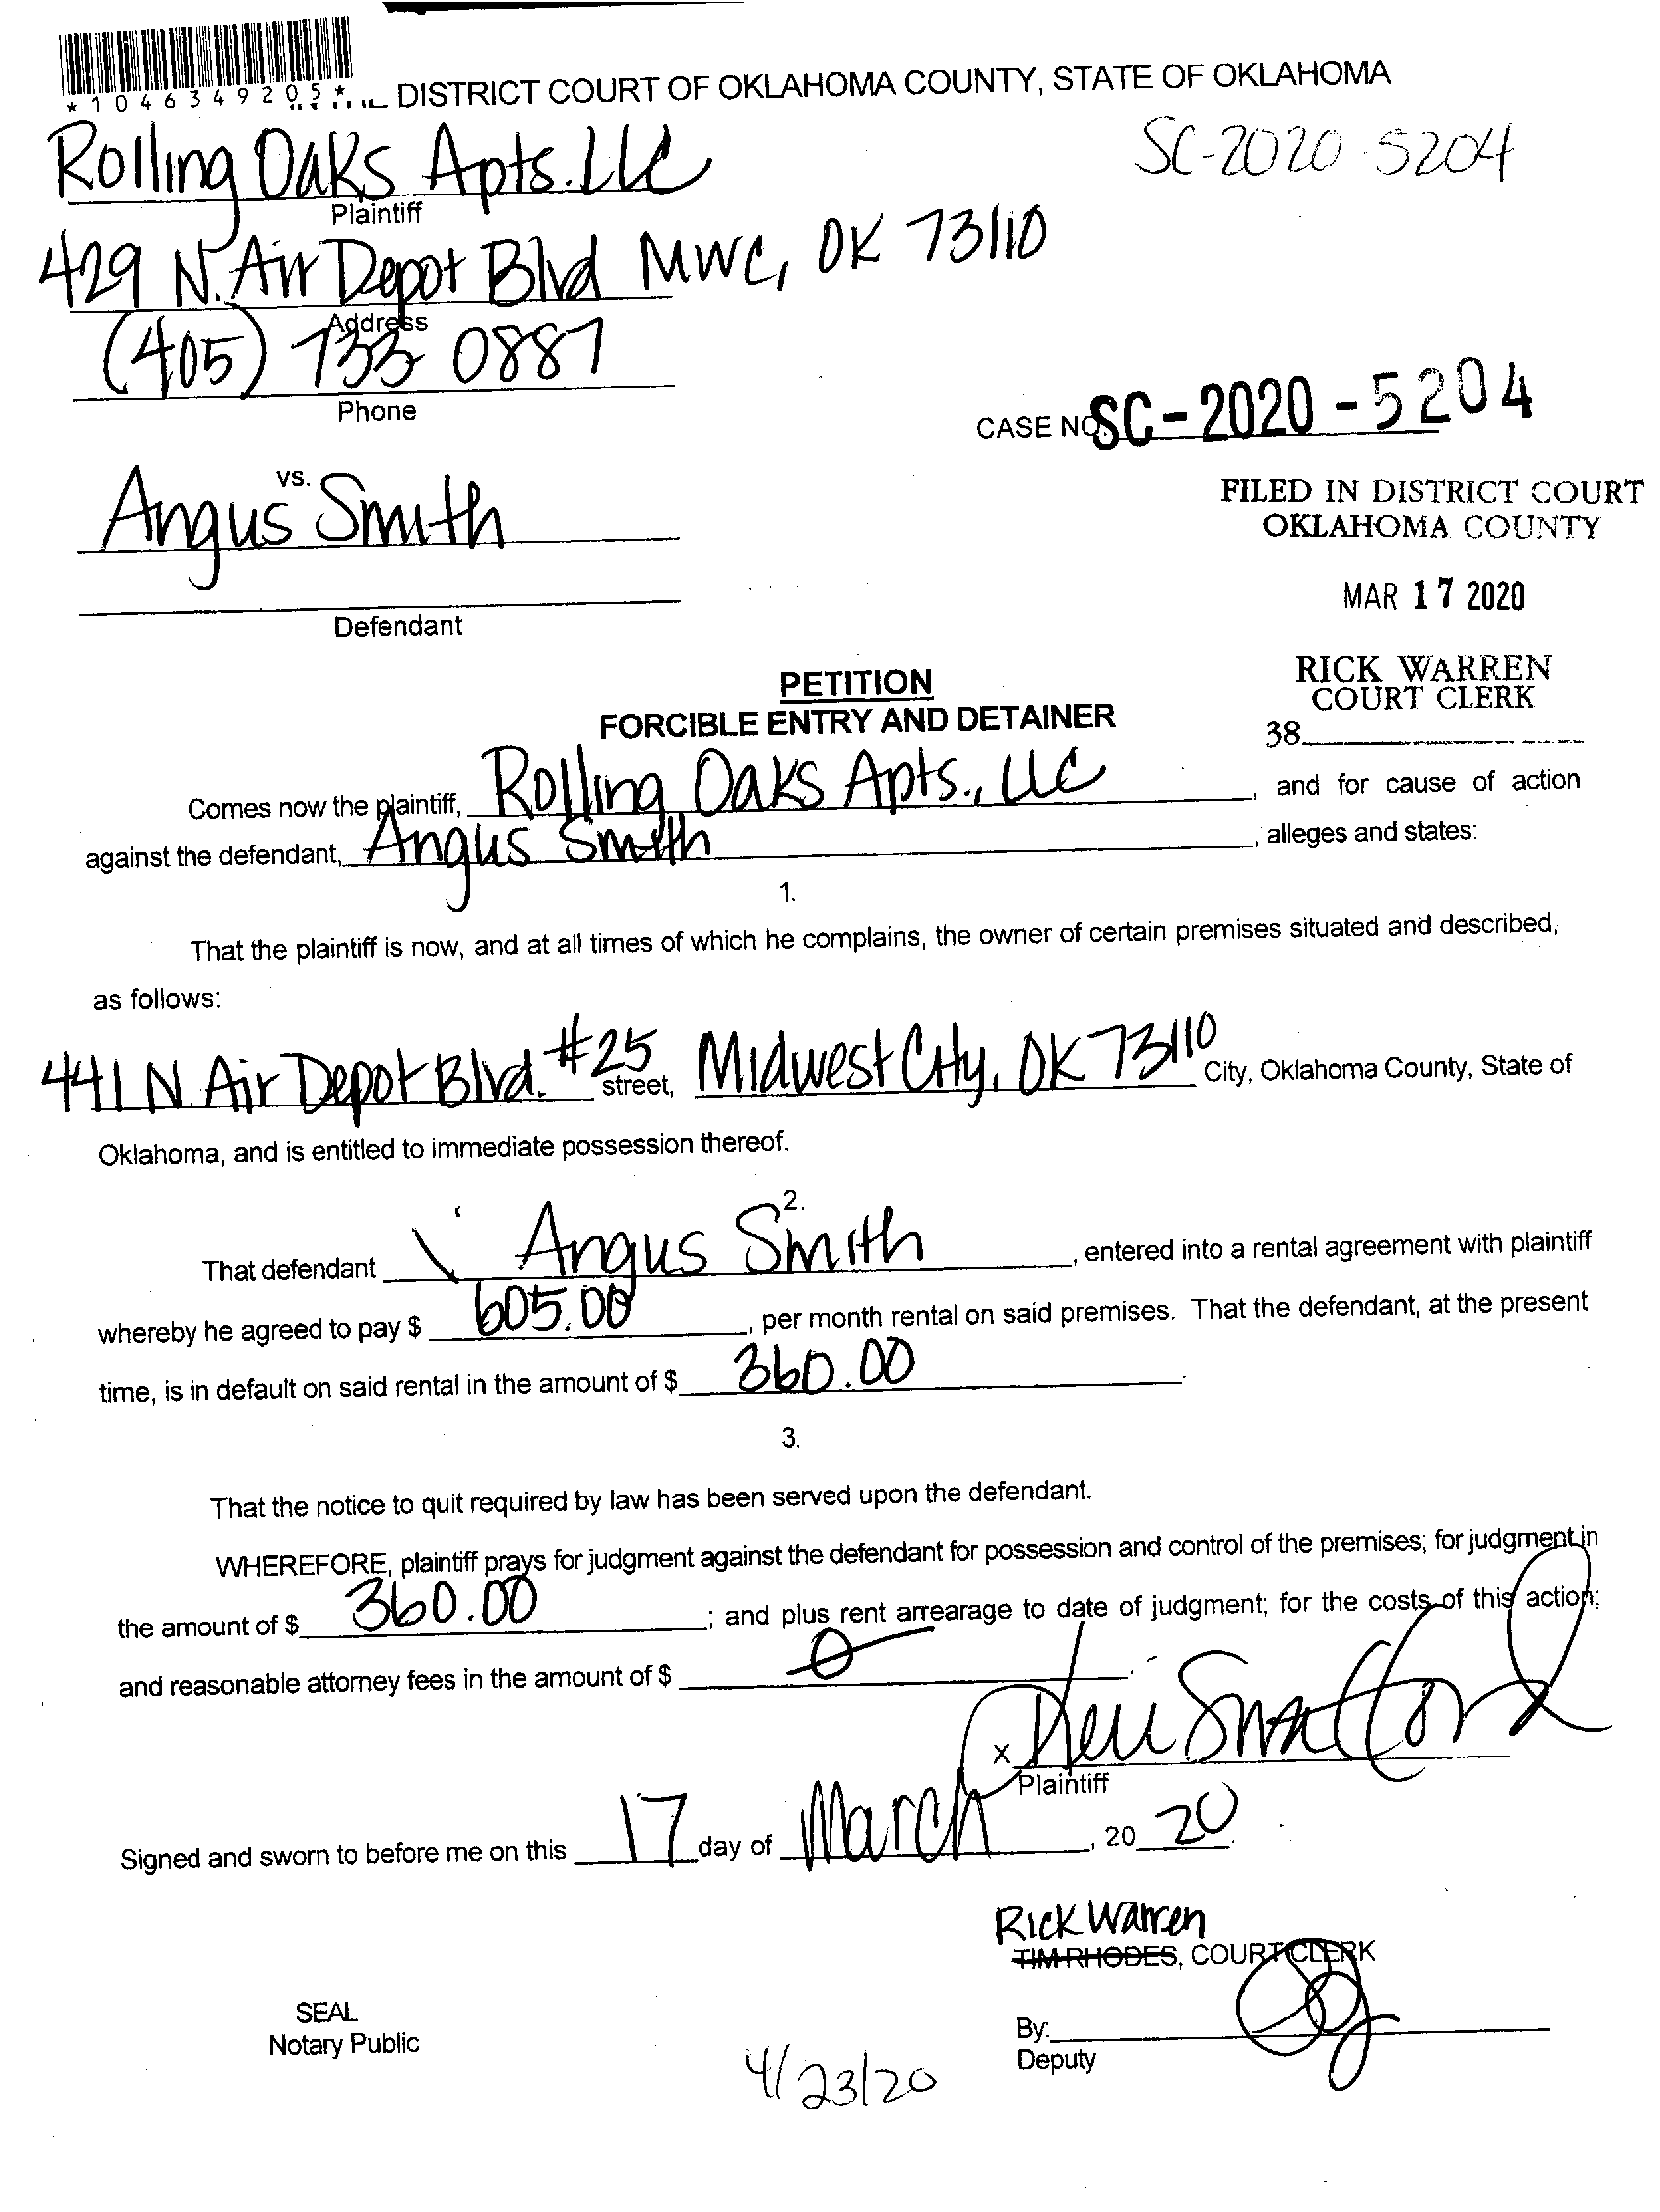 *1046349205*
DISTRICT COURT OF OKLAHOMA COUNTY, STATE OF OKLAHOMA
Rolling Oaks Apts. LLC
SC-2020-5204
Plaintiff
429 N. Air Depot Blvd MWC, OK 73110
Address
(405) 733 0887
Phone
CASE NO. SC-2020-5204
vs.
Angus Smith
FILED IN DISTRICT COURT
OKLAHOMA COUNTY
MAR 17 2020
Defendant
RICK WARREN
COURT CLERK
38
PETITION
FORCIBLE ENTRY AND DETAINER
Comes now the plaintiff, Rolling Oaks Apts., LLC, and for cause of action
against the defendant, Angus Smith, alleges and states:
1.
That the plaintiff is now, and at all times of which he complains, the owner of certain premises situated and described,
as follows:
441 N. Air Depot Blvd. #25 street, Midwest City, OK 73110 City, Oklahoma County, State of
Oklahoma, and is entitled to immediate possession thereof.
2.
That defendant Angus Smith, entered into a rental agreement with plaintiff
whereby he agreed to pay $ 605.00, per month rental on said premises. That the defendant, at the present
time, is in default on said rental in the amount of $ 360.00
3.
That the notice to quit required by law has been served upon the defendant.
WHEREFORE, plaintiff prays for judgment against the defendant for possession and control of the premises; for judgment in
the amount of $ 360.00; and plus rent arrearage to date of judgment; for the costs of this action;
and reasonable attorney fees in the amount of $ 0
x
Plaintiff
Signed and sworn to before me on this 17 day of March, 20 20.
Rick Warren
TIM RHODES, COURT CLERK
SEAL
Notary Public
By:
Deputy
4/23/20